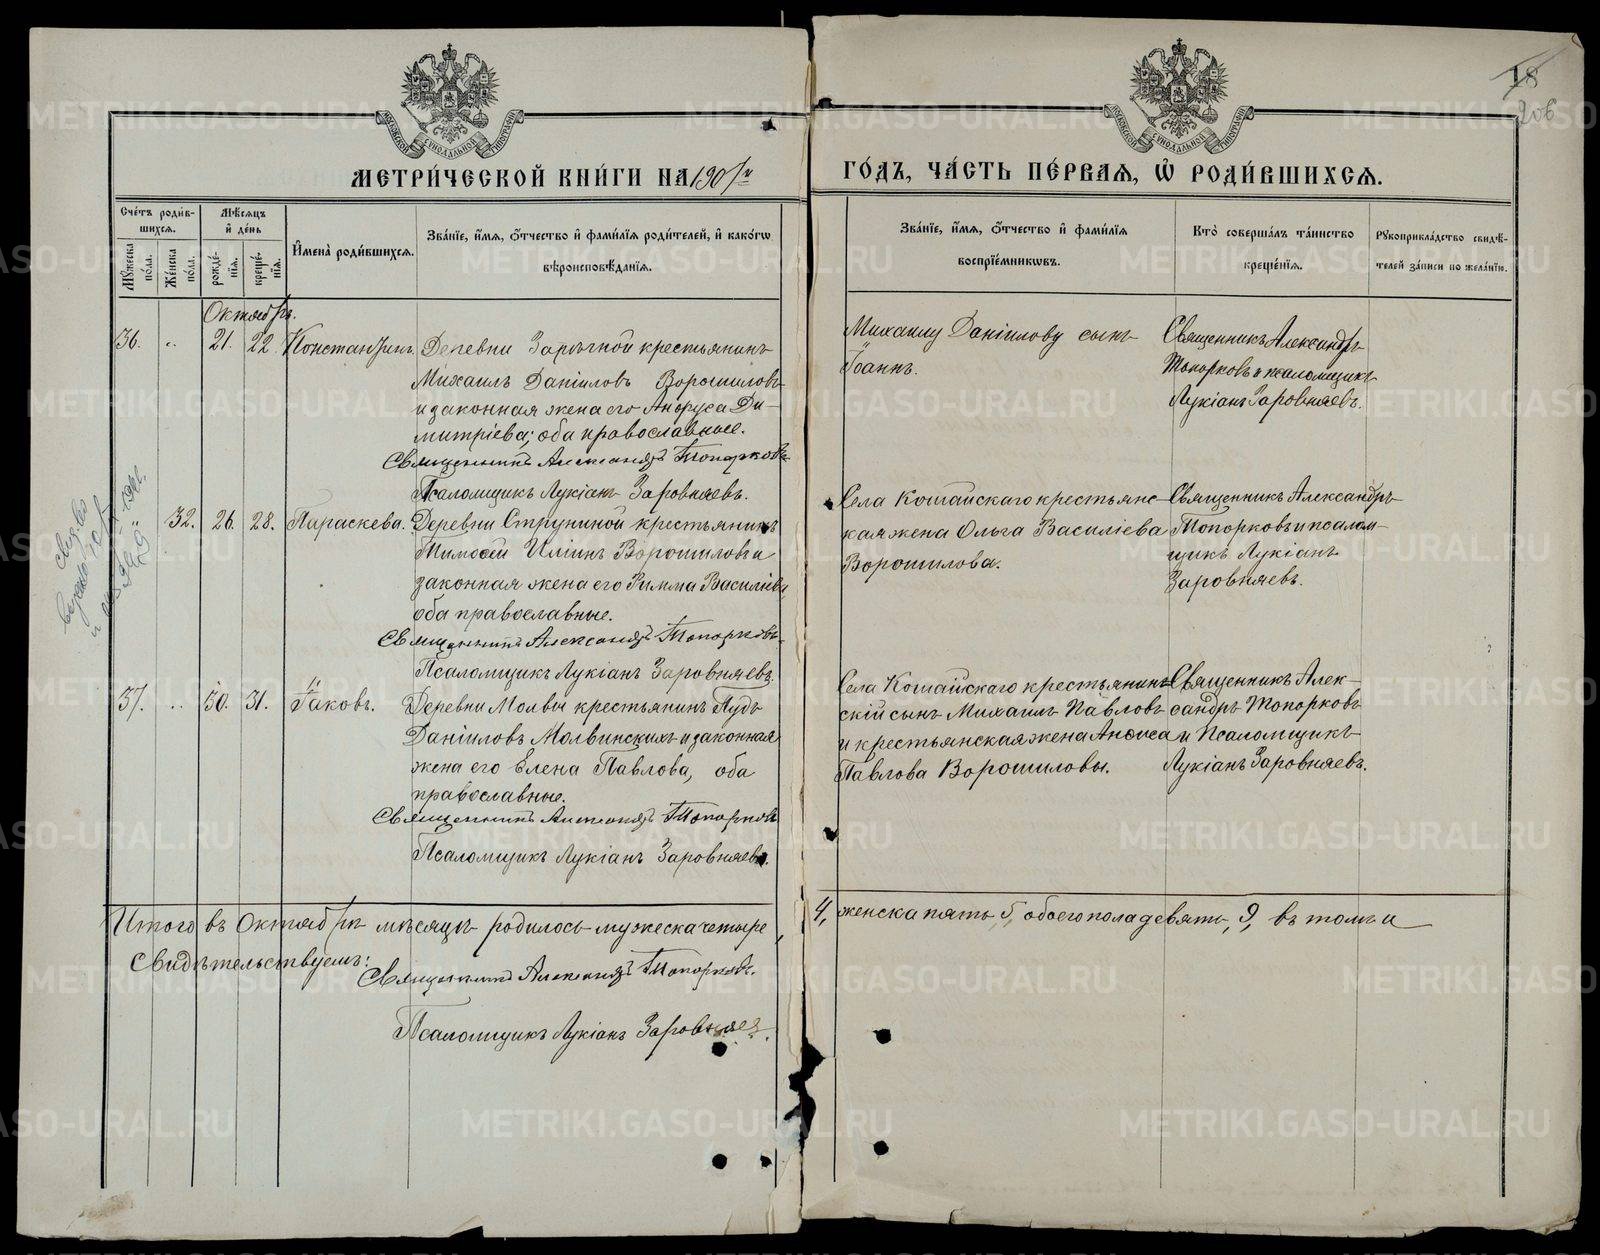 МЕТРИ́ЧЕСКОЙ КНИ́ГИ НА 1905й
ГО́ДЪ, ЧА́СТЬ ПЕ́РВАѦ, Ѽ РОДИ́ВШИХСѦ.
18
206
Сче́тъ роди́в-
шихсѧ.
Мѣ́сѧцъ
и҆ де́нь
Мꙋ́жеска по́ла.
Же́нска по́ла.
рожде́-
нїѧ.
креще́-
нїѧ.
И҆мена̀ роди́вшихсѧ.
Зва́нїе, и҆́мѧ, ѻ҆́тчество и҆ фами́лїѧ роди́телей, и҆ како́гѡ
вѣроисповѣ́данїѧ.
Зва́нїе, и҆́мѧ, ѻ҆́тчество и҆ фами́лїѧ
воспрїе́мникѡвъ.
Кто̀ соверша́лъ та́инство
креще́нїѧ.
Рꙋкоприкла́дство свидѣ́-
телей за́писи по жела́нїю.
Октябрь.
36. „ 21. 22. Константинъ. Деревни Заречной крестьянинъ
Михаилъ Даниловъ Ворошиловъ
и законная жена его Анфуса Ди-
митріева; оба православные.
Священникъ Александръ Топорковъ
Псаломщикъ Лукіанъ Заровняевъ.
Михаилу Даніилову сынъ
Іоаннъ.
Священникъ Александръ
Топорковъ и псаломщикъ
Лукіанъ Заровняевъ.
32. 26. 28. Параскева. Деревни Струниной крестьянинъ
Тимоѳей Иліинъ Ворошиловъ и
законная жена его Римма Василіева,
оба православные.
Священникъ Александръ Топорковъ
Псаломщикъ Лукіанъ Заровняевъ.
Села Кошайскаго крестьянс-
кая жена Ольга Василіева
Ворошилова.
Священникъ Александръ
Топорковъ и псалом-
щикъ Лукіанъ
Заровняевъ.
37. „ 30. 31. Іаковъ. Деревни Молвы крестьянинъ Іудъ
Даніиловъ Молвинскихъ и законная
жена его Елена Павлова, оба
православные.
Священникъ Александръ Топорковъ
Псаломщикъ Лукіанъ Заровняевъ.
Села Кошайскаго крестьянин-
скій сынъ Михаилъ Павловъ
и крестьянская жена Анфиса
Павлова Ворошиловы.
Священникъ Алек-
сандръ Топорковъ
и Псаломщикъ
Лукіанъ Заровняевъ.
Итого въ Октябрѣ мѣсяцѣ родилось мужеска четыре
4, женска пять 5, обоего пола девять, 9, въ томъ и
Свидѣтельствуемъ:
Священникъ Александръ Топорковъ.
Псаломщикъ Лукіанъ Заровняев.
METRIKI.GASO-URAL.RU